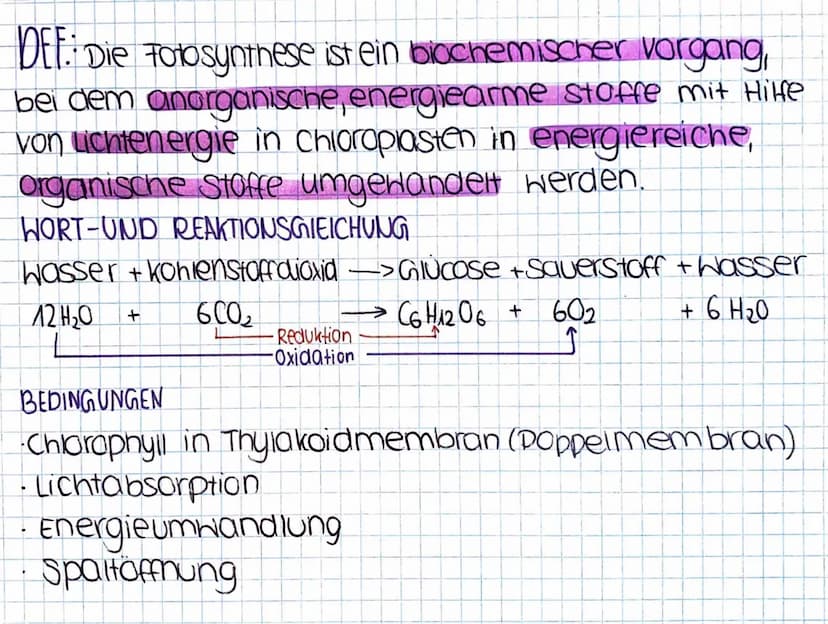 DEF.: Die Fotosynthese ist ein biochemischer Vorgang,
bei dem anorganische, energiearme Stoffe mit Hilfe
von Lichtenergie in Chloroplasten in energiereiche,
organische Stoffe umgewandelt werden.
WORT-UND REAKTIONSGLEICHUNG
Wasser + Kohlenstoffdioxid —> Glucose + Sauerstoff + Wasser
12 H₂O + 6 CO₂ → C₆H₁₂O₆ + 6O₂ + 6 H₂O
Reduktion
Oxidation
BEDINGUNGEN
· Chlorophyll in Thylakoidmembran (Doppelmembran)
· Lichtabsorption
· Energieumwandlung
· Spaltöffnung